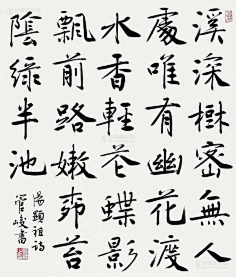 溪深樹密無人
處唯有幽花渡
水香輕花蝶影
飄前路嫩苔
隂綠半池
湯顯祖詩
管峻書